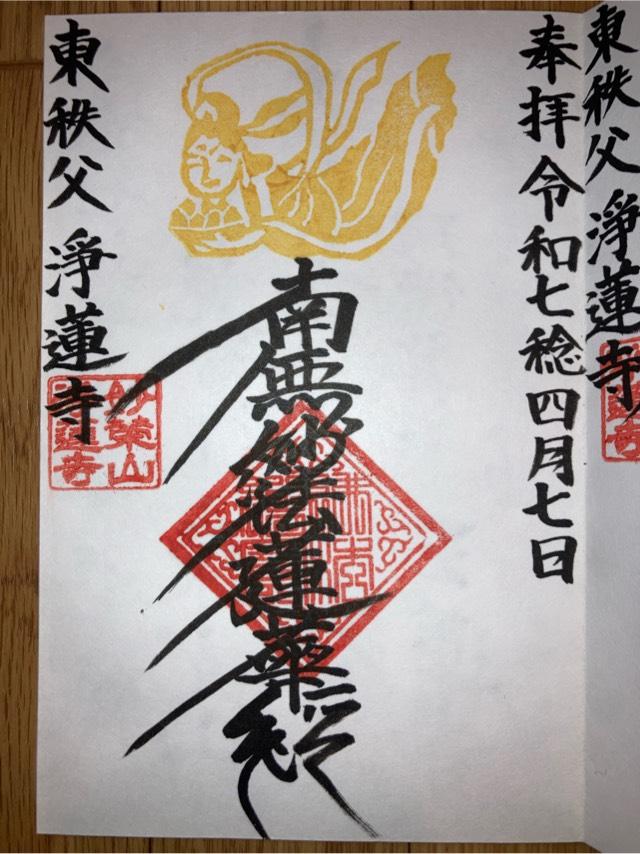 東秩父 浄蓮寺
奉拝 令和七稔四月七日
南無妙法蓮華経
東秩父 浄蓮寺